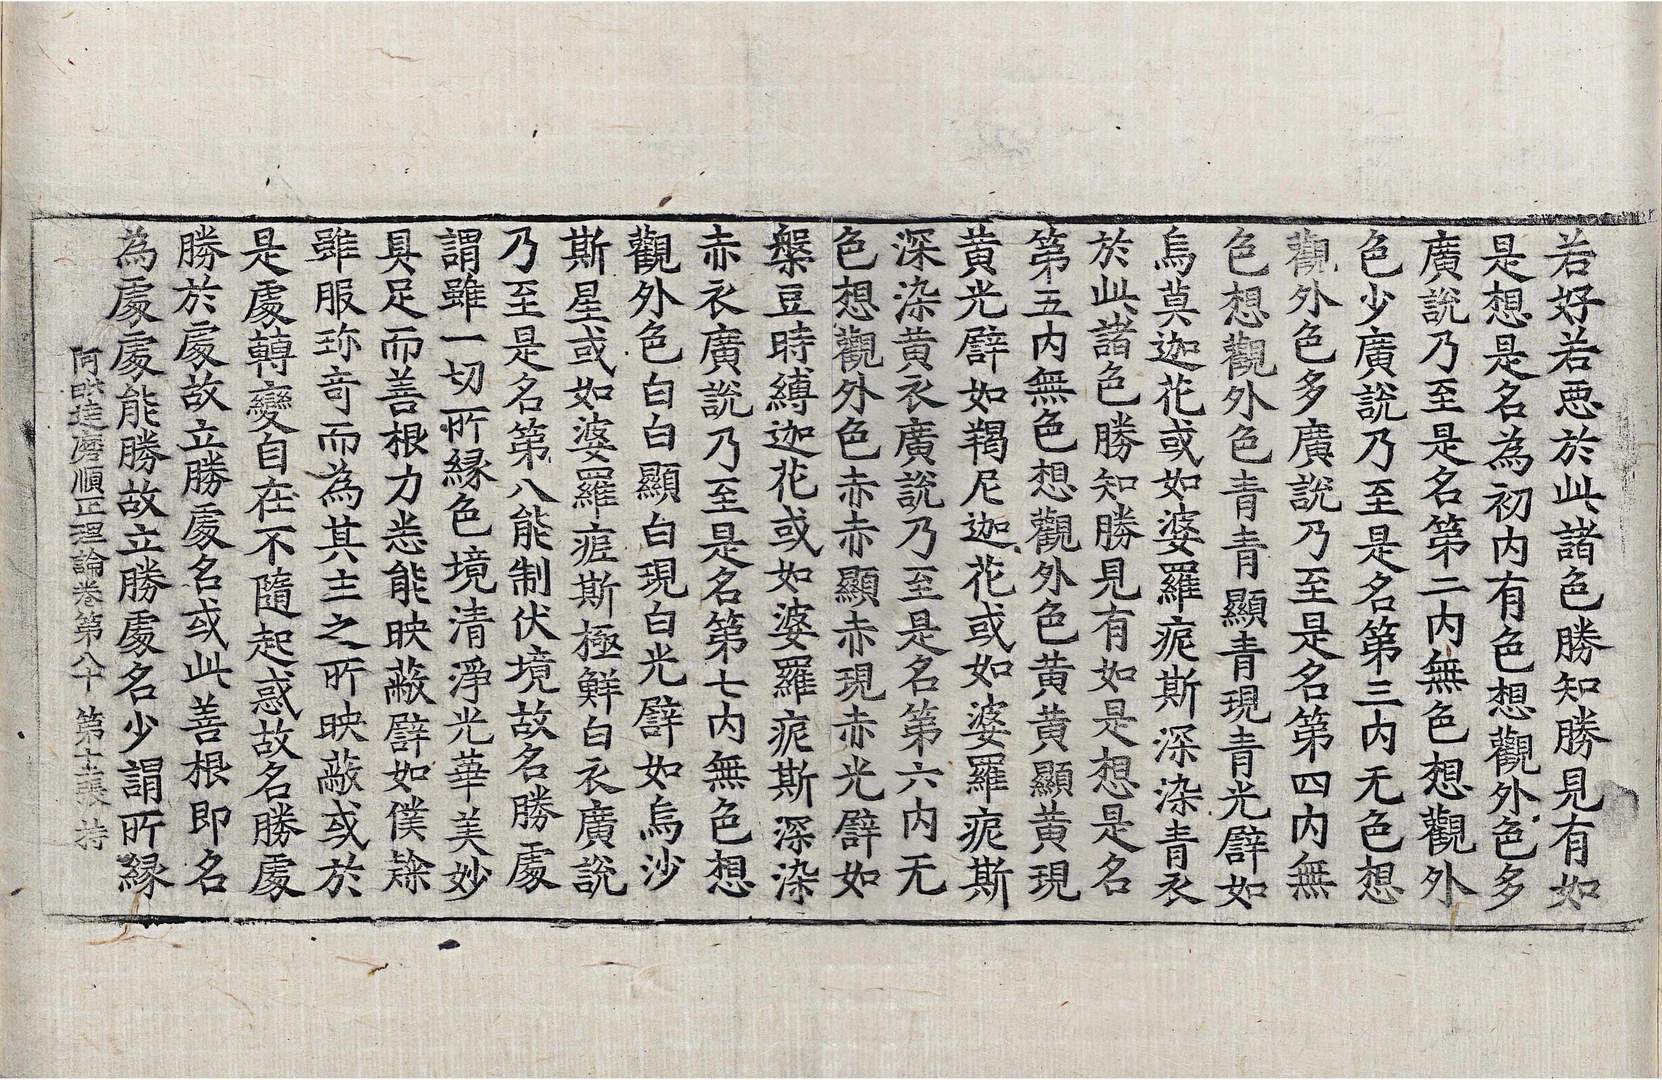 若好若恶於此諸色勝知勝見有如
是想是名為初内有色想觀外色多
廣說乃至是名第二内無色想觀外
色少廣說乃至是名第三内无色想
觀外色多廣說乃至是名第四内無
色想觀外色青青顯青現青光譬如
烏莫迦花或如婆羅痆斯深染青衣
於此諸色勝知勝見有如是想是名
第五内無色想觀外色黄黄顯黄現
黄光譬如羯尼迦花或如婆羅痆斯
深染黄衣廣說乃至是名第六内无
色想觀外色赤赤顯赤現赤光譬如
槃豆時縛迦花或如婆羅痆斯深染
赤衣廣說乃至是名第七内無色想
觀外色白白顯白現白光譬如烏沙
斯星或如婆羅痆斯極鮮白衣廣說
乃至是名第八能制伏境故名勝處
謂雖一切所縁色境清淨光華美妙
具足而善根力悉能映蔽譬如僕隸
雖服珎竒而為其主之所映蔽或於
是處轉變自在不隨起惑故名勝處
勝於處故立勝處名或此善根即名
為處處能勝故立勝處名少謂所縁
阿毗達磨順正理論卷第八十 第十二張 持